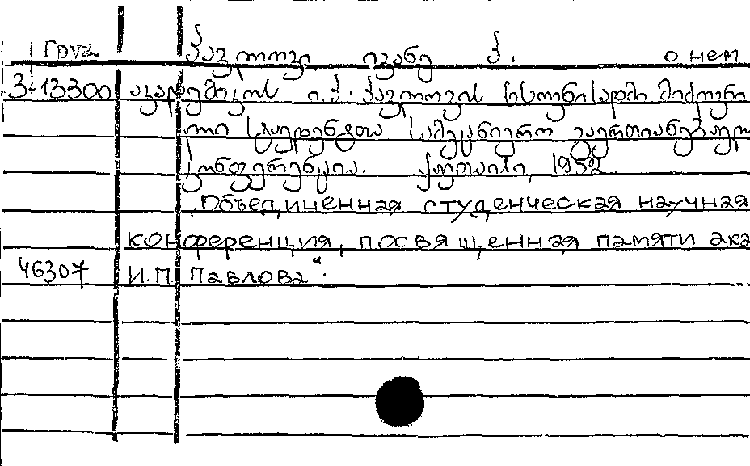 Груз პავლოვი ივანე პ. о нем
3-13300 აკადემიკოს ი.პ. პავლოვის ხსოვნისადმი მიძღვნი
ლი სტუდენტთა სამეცნიერო გაერთიანებული
კონფერენცია. ქუთაისი, 1952.
„Объединенная студенческая научная
конференция, посвященная памяти ака
46307 И.П. Павлова“.